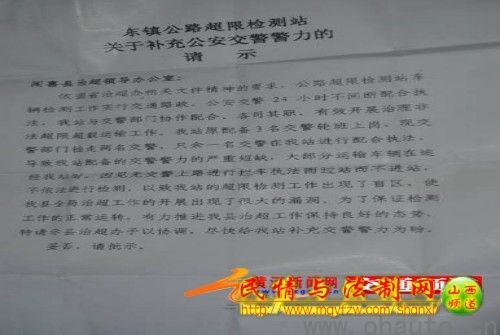 东镇公路超限检测站
关于补充公安交警警力的
请 示
闻喜县治超领导办公室:
依据省治超办相关文件精神的要求,公路超限检测站车
辆检测工作实行交通路政、公安交警24小时不间断配合执
法,我站与交警部门协作配合、各司其职、有效开展治理非
法超限超载运输工作。我站原配备3名交警轮班上岗,现交
警部门抽走两名交警,只余一名交警在我站进行配合执法,
导致我站配备的交警警力的严重短缺,大部分运输车辆在途
经我站时,因见无交警上路进行拦车执法而过站而不进站,
不依法进行检测,以致我站的超限检测工作出现了盲区,使
我县全局治超工作的开展出现了很大的漏洞,为了保证检测
工作的正常运转,有力推进我县治超工作保持良好的态势,
特请示县治超办予以协调,尽快给我站补充交警警力为盼。
妥否,请批示。
民情与法制网
山西频道
http://www.mqyfzw.com/shanx/